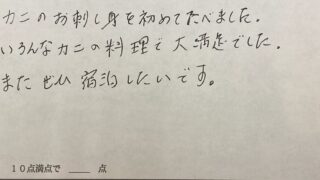 カニのお刺し身を初めてたべました.
いろんなカニの料理で大満足でした.
また ぜひ 宿泊したいです。
10点満点で ____ 点